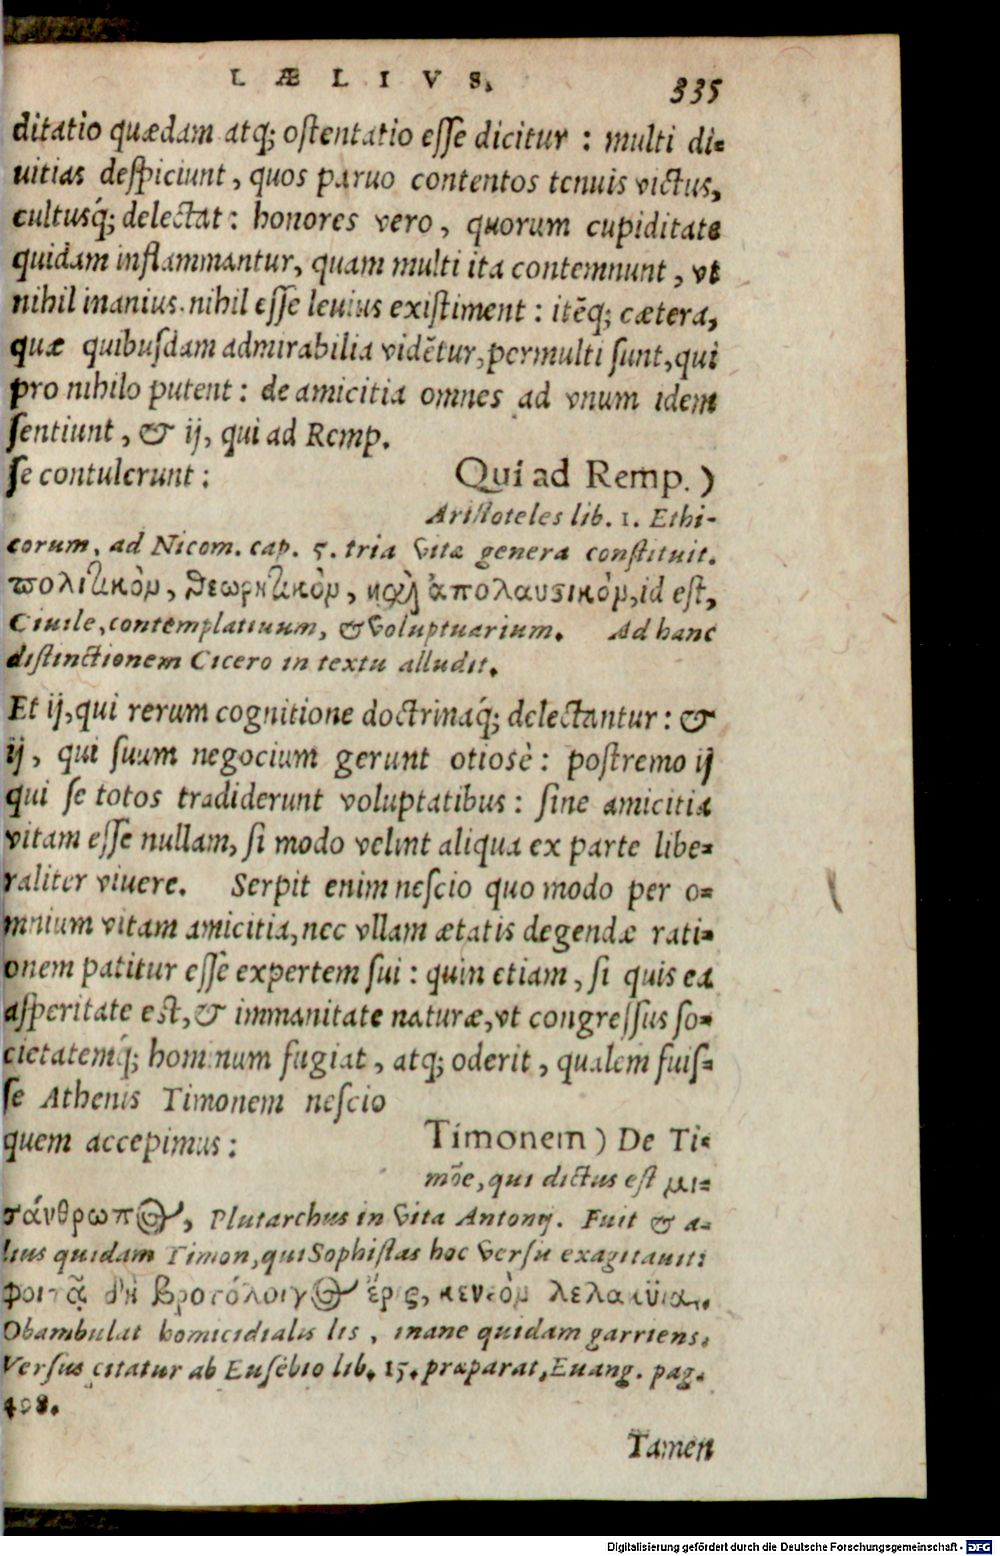 LÆLIVS. 335
ditatio quædam atq; ostentatio esse dicitur : multi di-
uitias despiciunt, quos paruo contentos tenuis victus,
cultusq́; delectat : honores vero, quorum cupiditate
quidam inflammantur, quam multi ita contemnunt, vt
nihil inanius, nihil esse leuius existiment : itẽq; cætera,
quæ quibusdam admirabilia vidẽtur, permulti sunt, qui
pro nihilo putent : de amicitia omnes ad vnum idem
sentiunt, & ij, qui ad Remp.
se contulerunt :
Qui ad Remp. )
Aristoteles lib. 1. Ethi-
corum, ad Nicom. cap. 5. tria vitæ genera constituit.
πολιτικὸμ, θεωρητικὸμ, καὶ ἀπολαυστικὸμ, id est,
Ciuile, contemplatiuum, & voluptuarium. Ad hanc
distinctionem Cicero in textu alludit.
Et ij, qui rerum cognitione doctrinaq́; delectantur : &
ij, qui suum negocium gerunt otiosè : postremo ij
qui se totos tradiderunt voluptatibus : sine amicitia
vitam esse nullam, si modo velint aliqua ex parte libe-
raliter viuere. Serpit enim nescio quo modo per o-
mnium vitam amicitia, nec vllam ætatis degendæ rati-
onem patitur esse expertem sui : quin etiam, si quis ea
asperitate est, & immanitate naturæ, vt congressus so-
cietatemq́; hominum fugiat, atq; oderit, qualem fuis-
se Athenis Timonem nescio
quem accepimus :
Timonem ) De Ti-
mõe, qui dictus est μι-
σάνθρωπος, Plutarchus in vita Antonij. Fuit & a-
lius quidam Timon, qui Sophistas hoc versu exagitauit:
φοιτᾷ δὴ βροτόλοιγος ἔρις, κενεὸμ λελακυῖα.
Obambulat homicidialis lis, inane quidam garriens.
Versus citatur ab Eusebio lib. 15. præparat, Euang. pag.
408.
Tamen
Digitalisierung gefördert durch die Deutsche Forschungsgemeinschaft - DFG